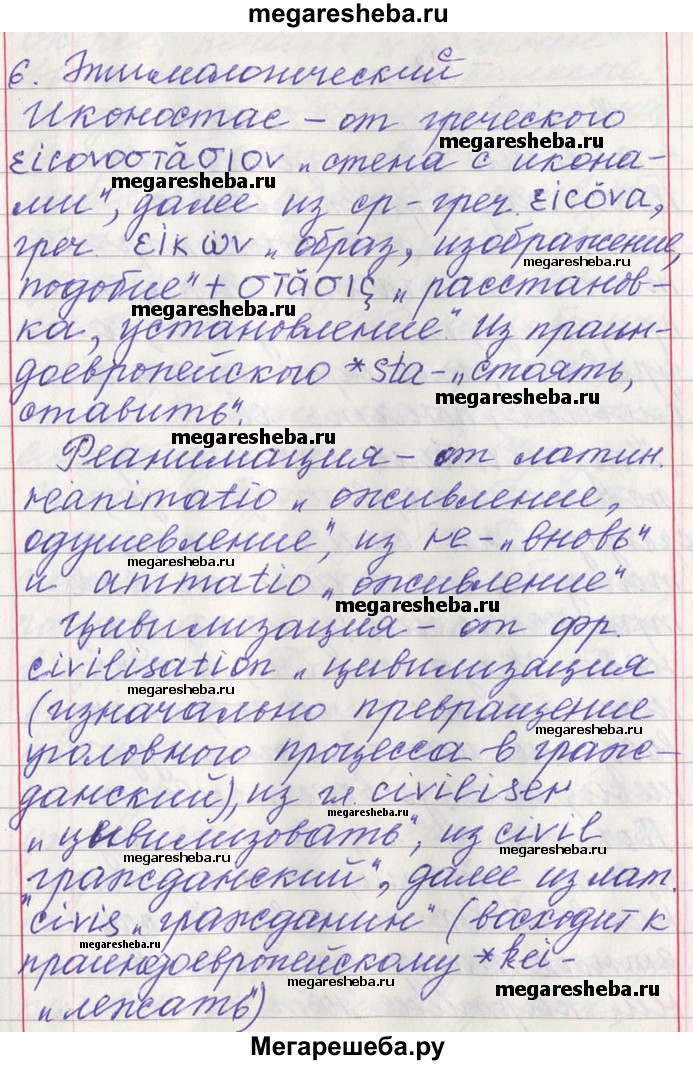 megaresheba.ru
6. Этимологический с
Иконостас – от греческого
megaresheba.ru
εἰcονοστᾰ́σιον „стена с икона-
megaresheba.ru
ми“, далее из ср-греч. εἰcόνα,
megaresheba.ru
греч. εἰκών „образ, изображение,
megaresheba.ru
подобие“ + στᾰ́σις „расстанов-
ка, установление“. Из праин-
megaresheba.ru
доевропейского *sta- „стоять,
megaresheba.ru
ставить“.
megaresheba.ru
Реанимация – от латин.
reanimatio „оживление,
одушевление“, из re- „вновь“
megaresheba.ru
и animatio „оживление“
megaresheba.ru
Цивилизация – от фр.
civilisation „цивилизация
megaresheba.ru
(изначально превращение
megaresheba.ru
уголовного процесса в граж-
megaresheba.ru
данский), из гл. civiliser
megaresheba.ru
„цивилизовать“, из civil
megaresheba.ru
„гражданский“, далее из лат.
civis „гражданин“ (восходит к
megaresheba.ru
праиндоевропейскому *kei-
megaresheba.ru
„лежать“)
Мегарешеба.ру